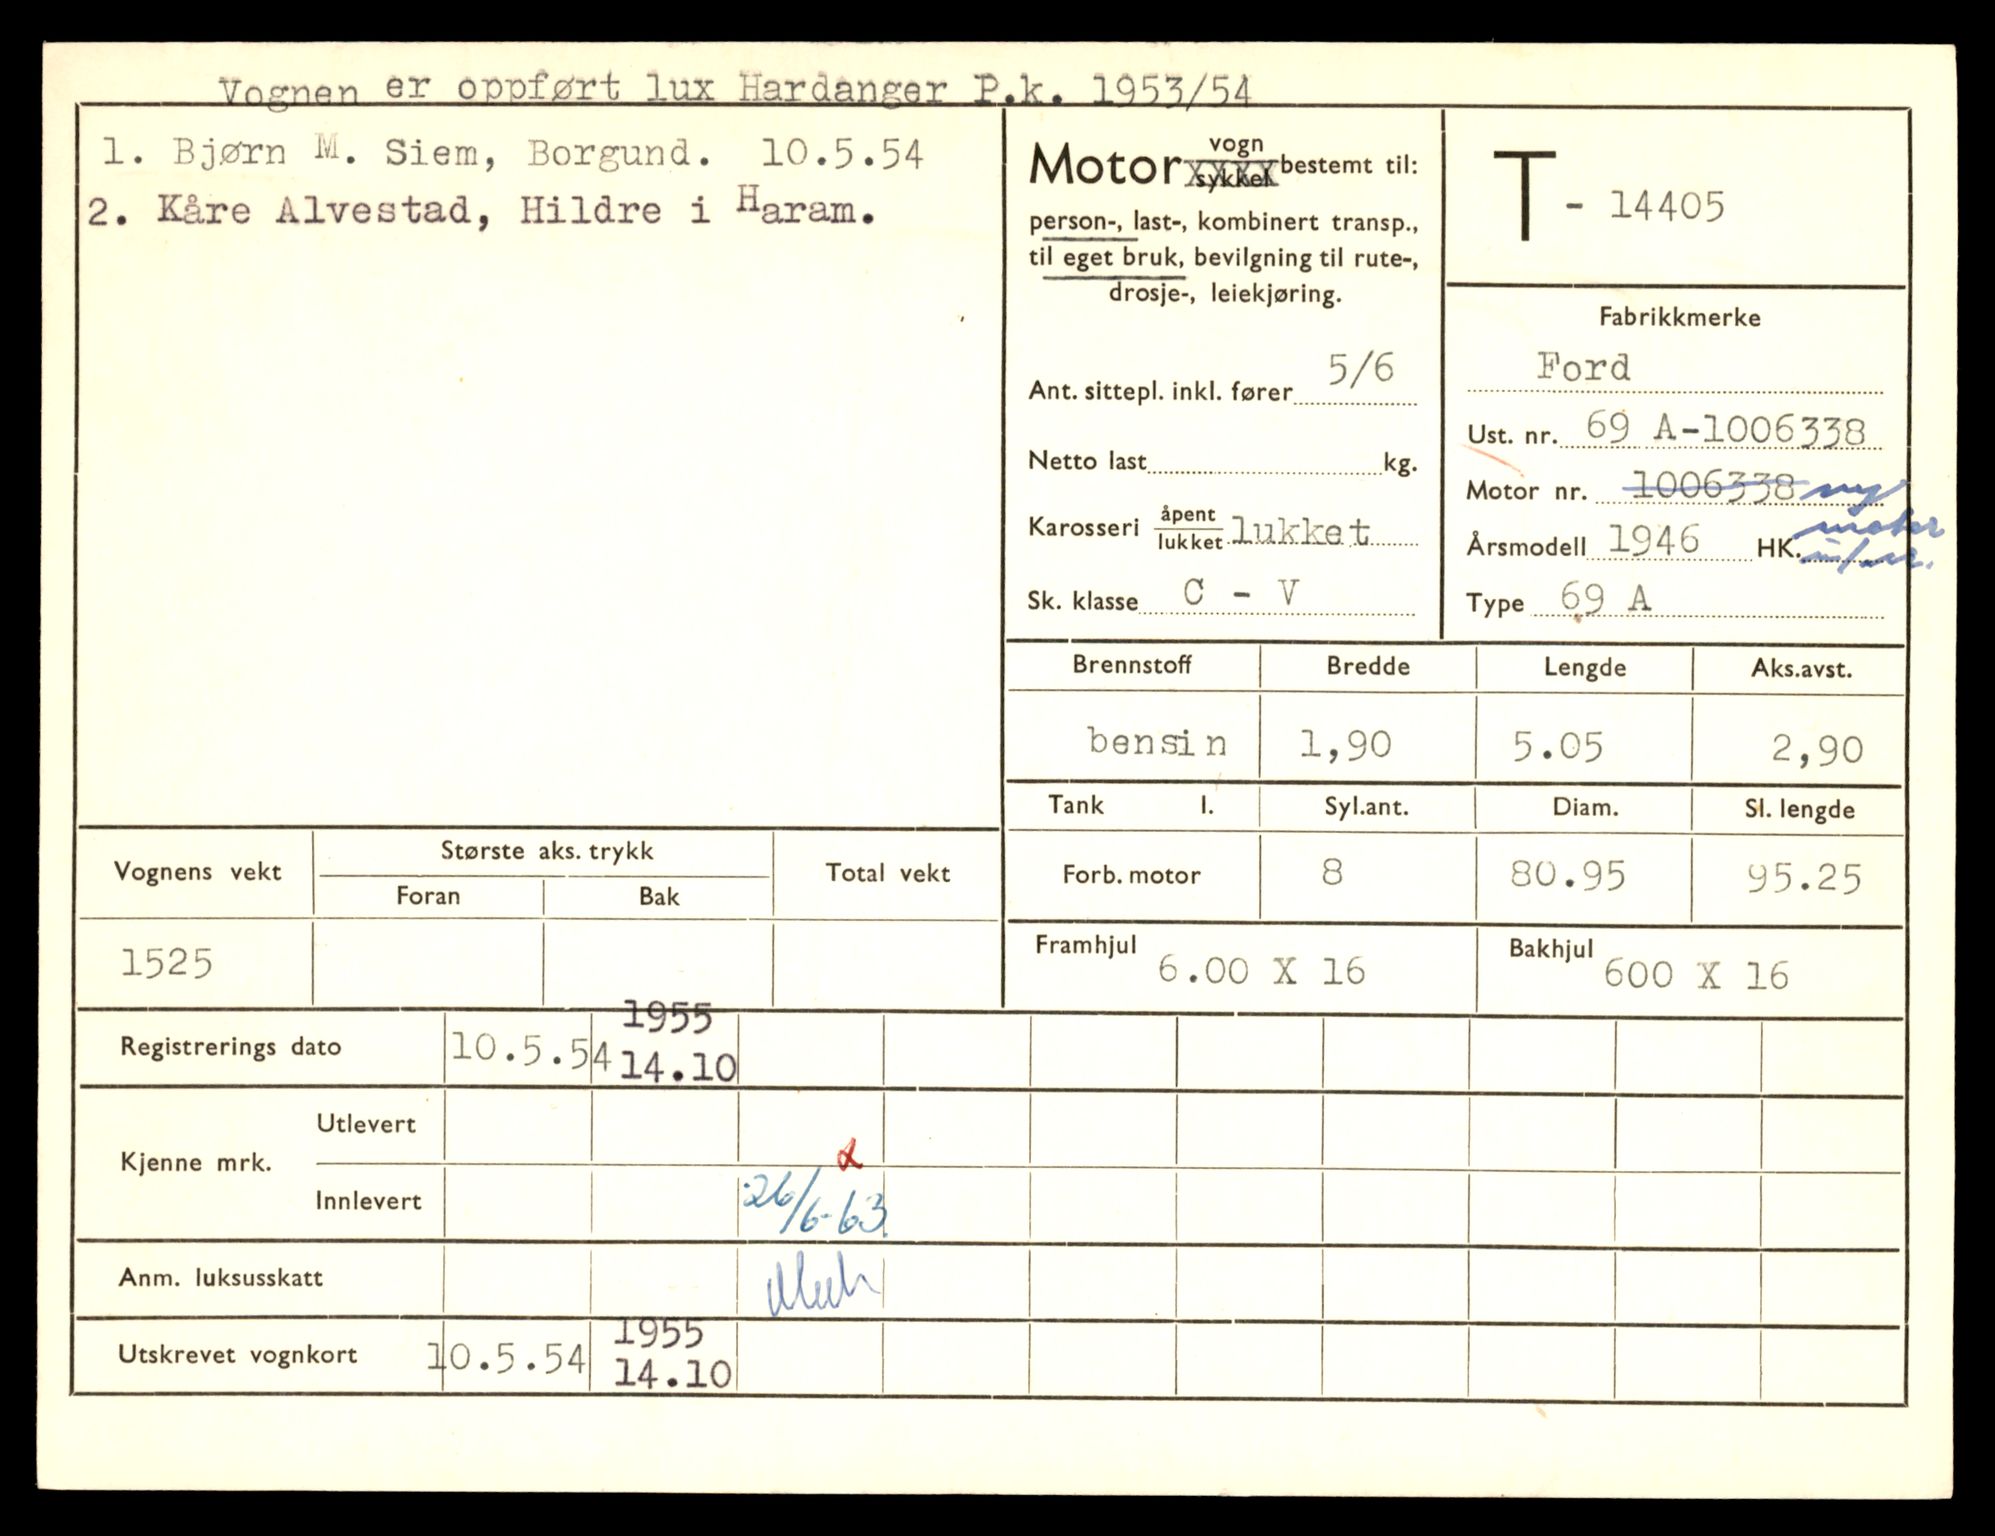 Vognen er oppført lux Hardanger P.k. 1953/54
1. Bjørn M. Siem, Borgund. 10.5.54
2. Kåre Alvestad, Hildre i Haram.
Motor vogn
sykkel bestemt til:
person-, last-, kombinert transp.,
til eget bruk, bevilgning til rute-,
drosje-, leiekjøring.
Ant. sittepl. inkl. fører 5/6
Netto last kg.
Karosseri åpent
lukket lukket
Sk. klasse C - V
T - 14405
Fabrikkmerke
Ford
Ust. nr. 69 A-1006338
Motor nr. 1006338 ny
motor
Årsmodell 1946 HK.
Type 69 A
Brennstoff Bredde Lengde Aks.avst.
bensin 1,90 5.05 2,90
Tank l. Syl.ant. Diam. Sl. lengde
Forb. motor 8 80.95 95.25
Framhjul 6.00 X 16 Bakhjul 600 X 16
Vognens vekt Største aks. trykk Total vekt
Foran Bak
1525
Registrerings dato 10.5.54 1955
14.10
Kjenne mrk. Utlevert
Innlevert 26/6-63
Anm. luksusskatt
Utskrevet vognkort 10.5.54 1955
14.10